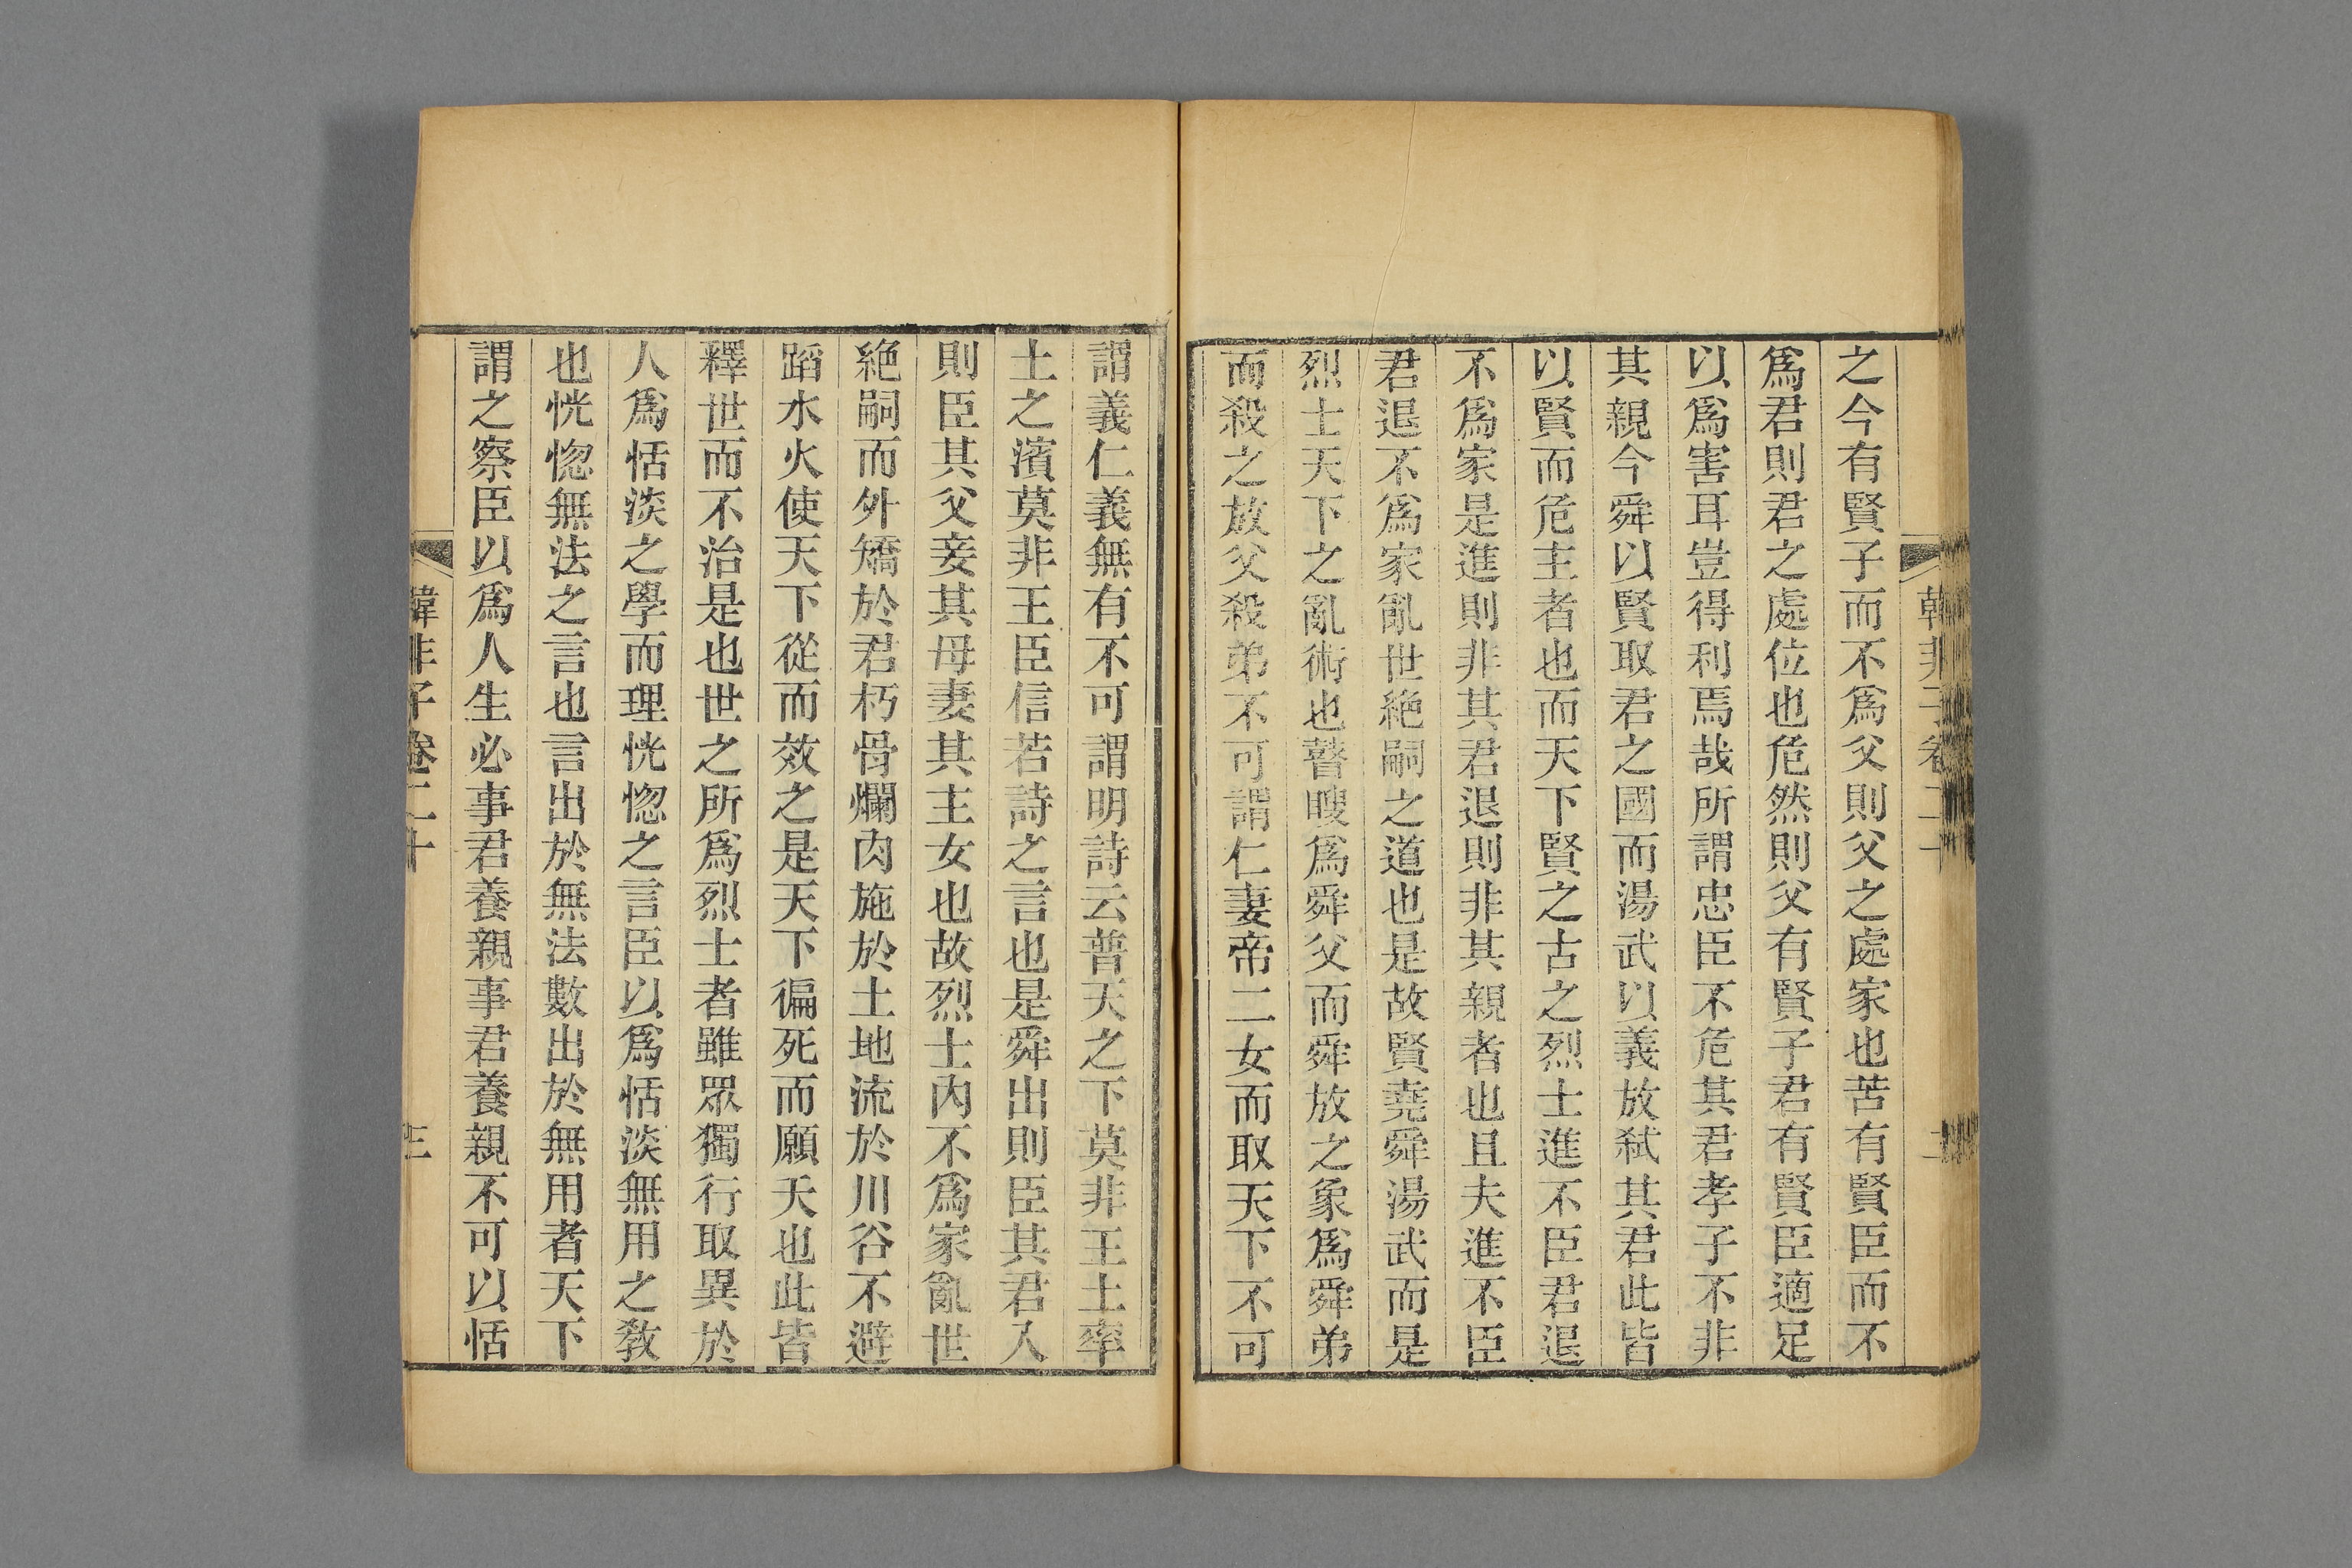 韓非子卷二十
二
之今有賢子而不爲父則父之處家也苦有賢臣而不
爲君則君之處位也危然則父有賢子君有賢臣適足
以爲害耳豈得利焉哉所謂忠臣不危其君孝子不非
其親今舜以賢取君之國而湯武以義放弒其君此皆
以賢而危主者也而天下賢之古之烈士進不臣君退
不爲家是進則非其君退則非其親者也且夫進不臣
君退不爲家亂世絕嗣之道也是故賢堯舜湯武而是
烈士天下之亂術也瞽瞍爲舜父而舜放之象爲舜弟
而殺之放父殺弟不可謂仁妻帝二女而取天下不可
謂義仁義無有不可謂明詩云普天之下莫非王土率
土之濱莫非王臣信若詩之言也是舜出則臣其君入
則臣其父妾其母妻其主女也故烈士內不爲家亂世
絕嗣而外矯於君朽骨爛肉施於土地流於川谷不避
蹈水火使天下從而效之是天下徧死而願夭也此皆
釋世而不治是也世之所爲烈士者雖眾獨行取異於
人爲恬淡之學而理恍惚之言臣以爲恬淡無用之教
也恍惚無法之言也言出於無法數出於無用者天下
謂之察臣以爲人生必事君養親事君養親不可以恬
韓非子卷二十
三